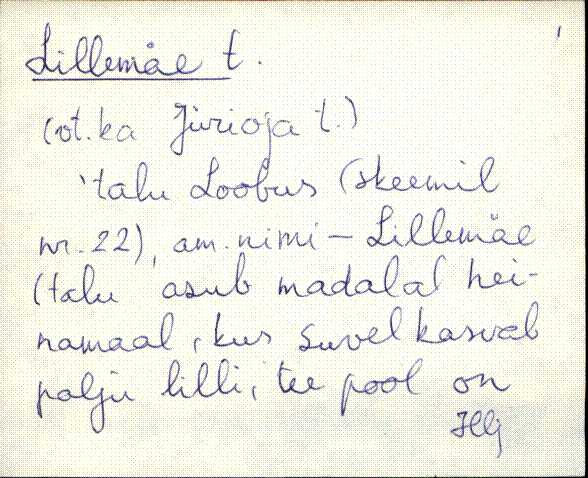 Lillemäe t.
(vt. ka Jürioja t.)
'talu Loobus (skeemil
nr. 22), am. nimi – Lillemäe
(talu asub madalal hei-
namaal, kus suvel kasvab
palju lilli, tee pool on